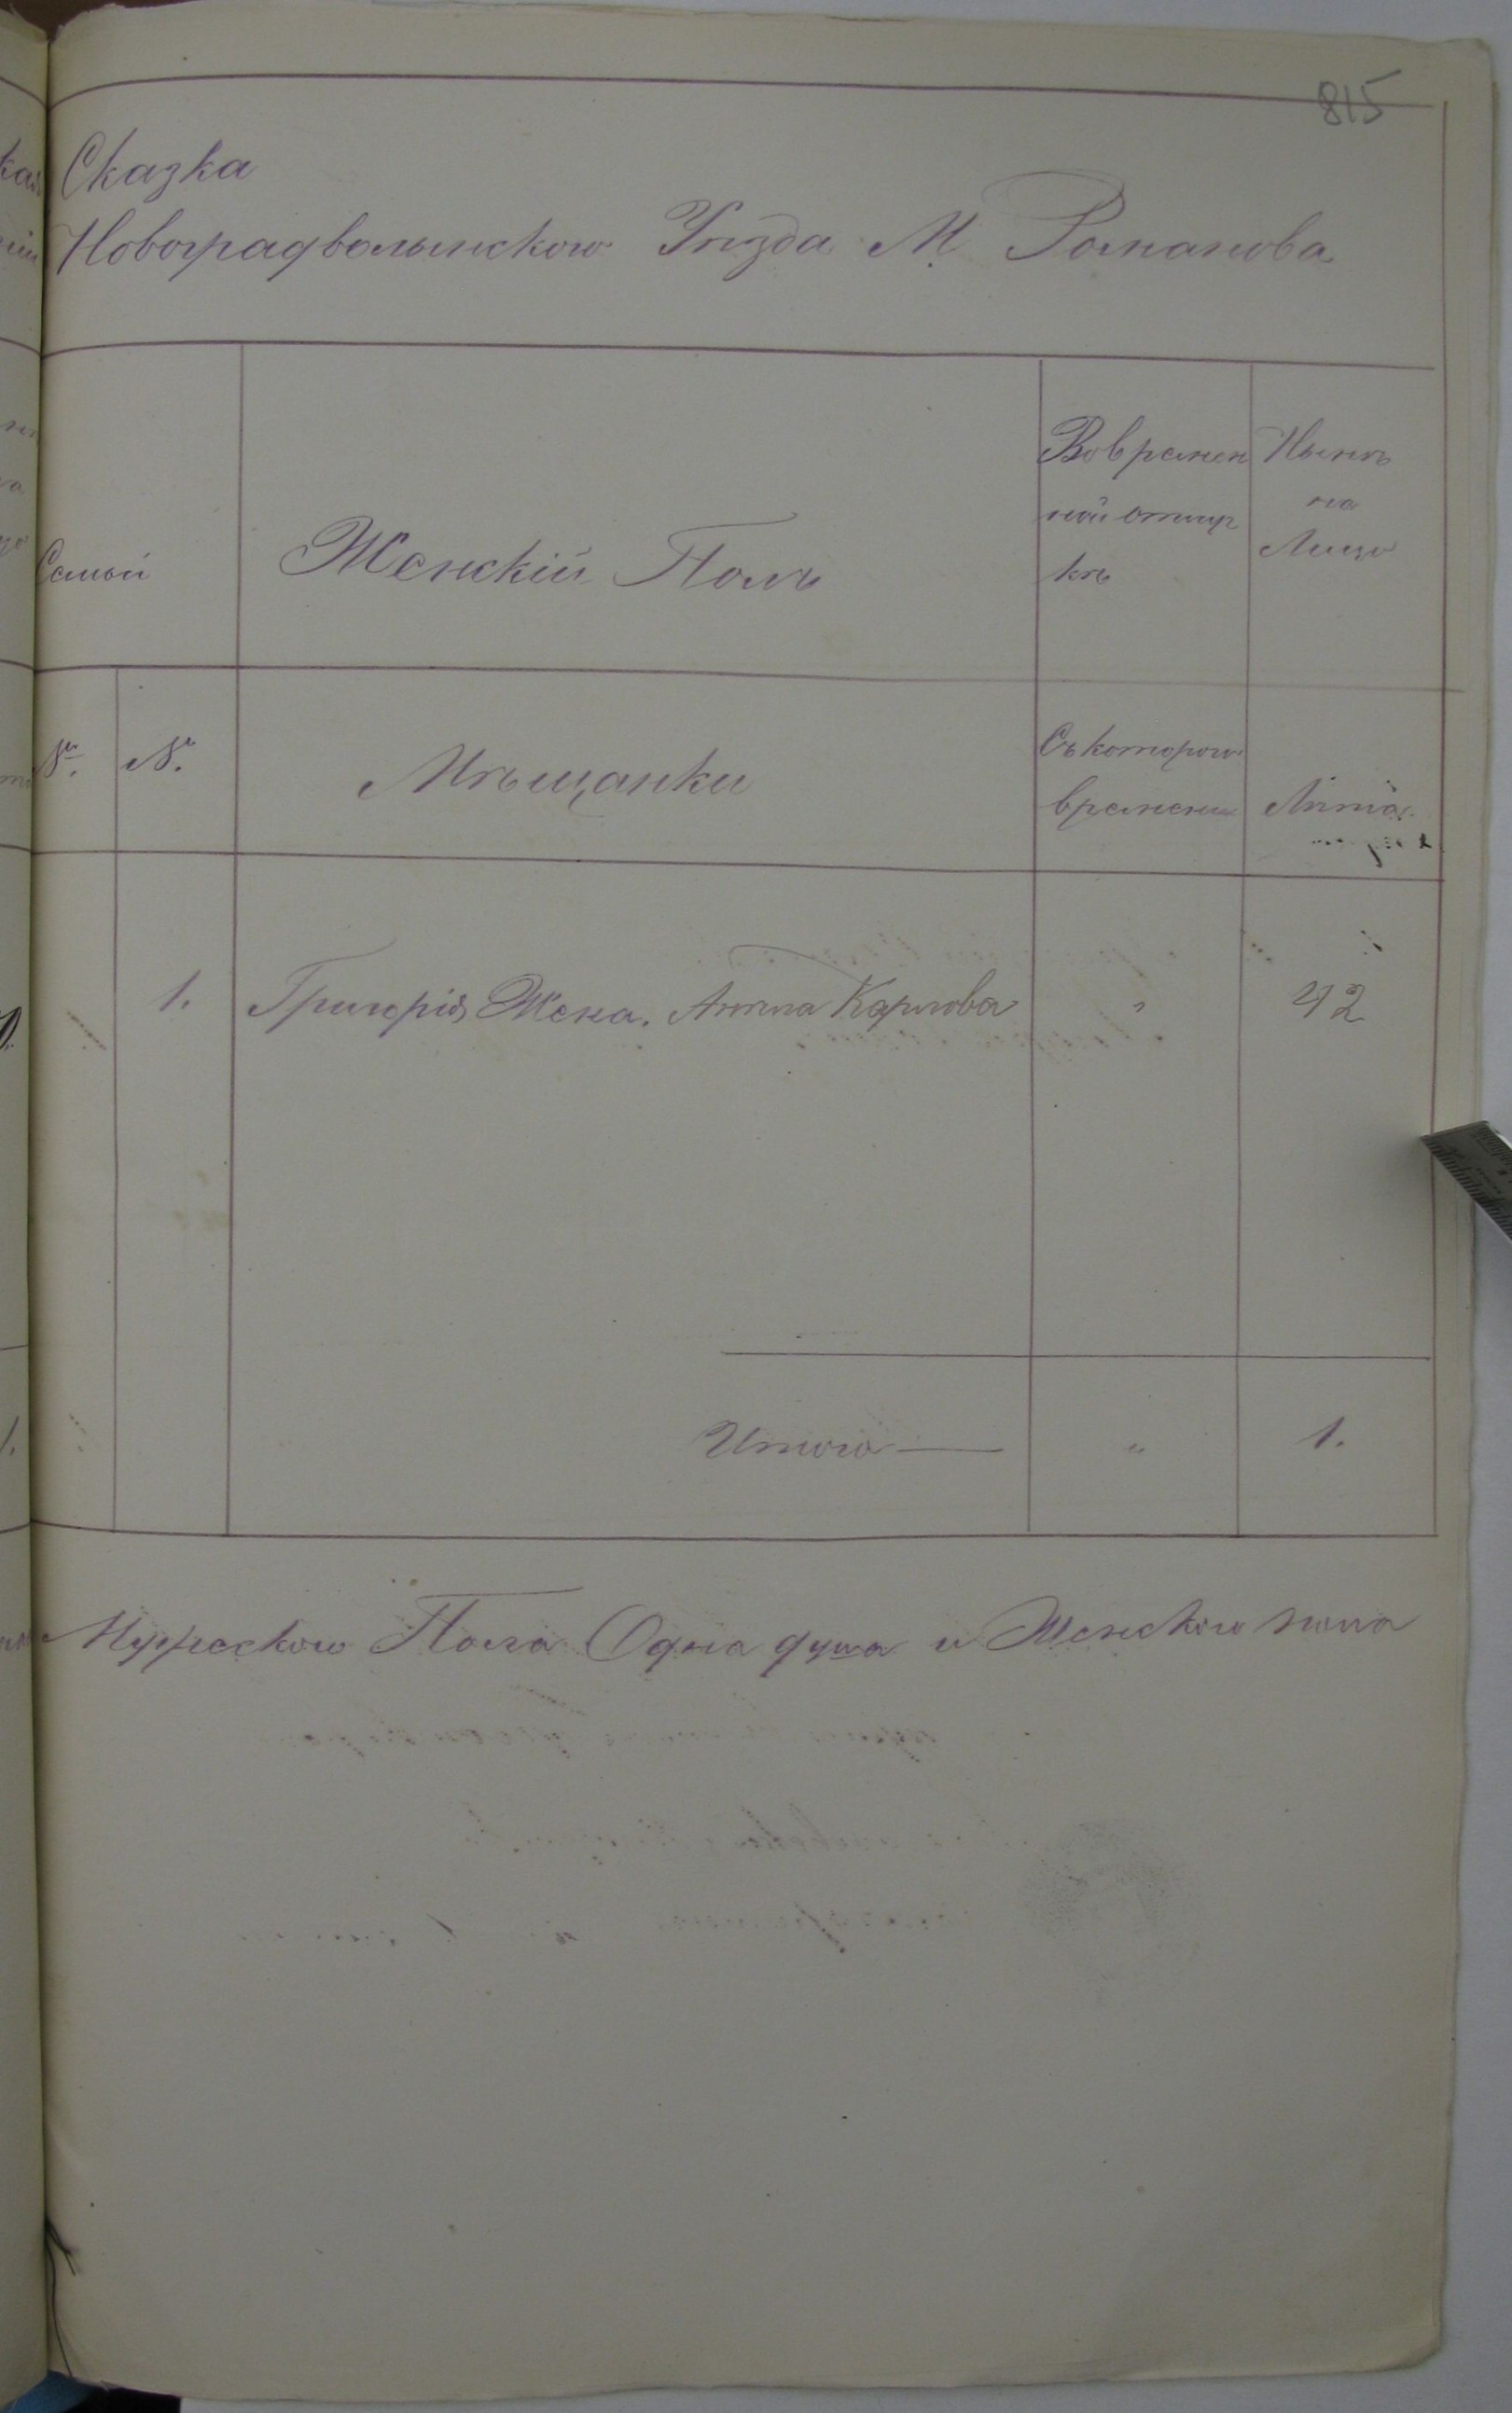 815
Сказка
Новоградволынского Уѣзда М. Романова
Семьи
Женскій Полъ
Вовремен
ной отлуч
кѣ
Нынѣ
на
Лицо
№. №.
Мѣщанки
Съ котораго
времени
Лѣта
1. Григорія Жена. Анѣла Карлова " 42
Итого — " 1.
Мужескаго Пола Одна душа и Женского пола